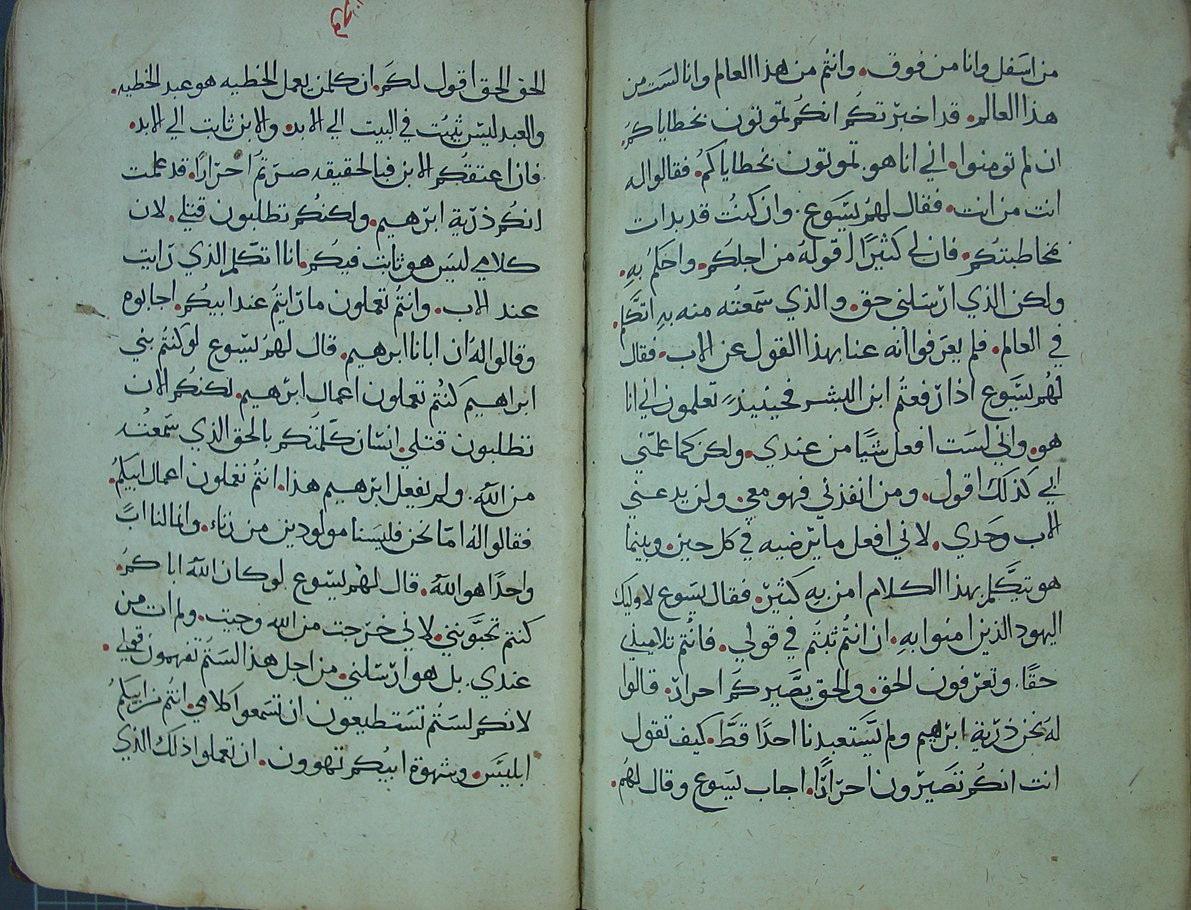 من اسفل وانا من فوق. وانتم من هذا العالم وانا لست من
هذا العالم. قد اخبرتكم انكم تموتون بخطاياكم
ان لم تومنوا. اني انا هو تموتون بخطاياكم. فقالوا له
انت من انت. فقال لهم يسوع. وان كنت قد بدات
مخاطبتكم. فان لي كثيرًا اقوله من اجلكم. واحكم به.
ولكن الذي ارسلني حق. والذي سمعته منه به اتكلم.
في العالم. فلم يعرفوا انه عنا بهذا القول عن الاب. فقال
لهم يسوع اذا رفعتم ابن البشر فحينيذٍ تعلمون اني انا
هو. واني لست افعل شيًا من عندي. ولكن كما علمني
ابي كذلك اقول. ومن انفذني فهو معي. ولن يدعني
الاب وحدي. لاني افعل ما يرضيه في كل حين. وبينما
هو يتكلم بهذا الكلام امن به كثير. فقال يسوع لاوليك
اليهود الذين امنوا به. ان انتم ثبتم في قولي. فانتم تلاميذي
حقًا. وتعرفون الحق. والحق يصيركم احرار. قالوا
له نحن ذرية ابرهيم ولم يستعبدنا احدًا قط. كيف تقول
انت انكم تصيرون احرارًا. اجاب يسوع وقال لهم.
الحق الحق اقول لكم. ان كلمن يعمل الخطيه هو عبد الخطيه.
والعبد ليس يثبت في البيت الي الابد. والابن ثابت الي الابد.
فان اعتقكم الابن فبالحقيقه صرتم احرارًا. قد علمت
انكم ذرية ابرهيم. ولكنكم تطلبون قتلي. لان
كلامي ليس هو ثابت فيكم. انا اتكلم الذي رايت
عند الاب. وانتم تعملون ما رايتم عند ابيكم. اجابوه
وقالوا له ان ابانا ابرهيم. قال لهم يسوع لو كنتم بني
ابراهيم كنتم تعملون اعمال ابرهيم. لكنكم الان
تطلبون قتلي. انسان كلمتكم بالحق الذي سمعته
من الله. ولم يفعل ابرهيم هذا. انتم تعملون اعمال ابيكم.
فقالوا له امّا نحن فليسنا مولودين من زناء. وانما لنا ابًا
واحدًا هو الله. قال لهم يسوع لو كان الله اباكم.
كنتم تحبونني. لاني خرجت من الله وجيت. ولم ات من
عندي. بل هو ارسلني. من اجل هذا لستم تفهمون قولي.
لانكم لستم تستطيعون ان تسمعوا كلامي. انتم من ابيكم
ابليس. وشهوة ابيكم تهوون. ان تعملوا ذلك الذي